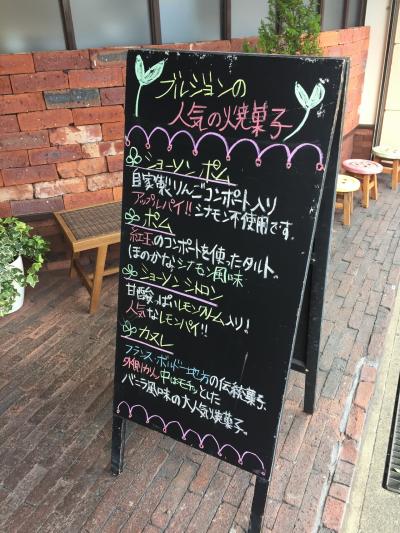 ブルジョンの
人気の焼菓子
ショーソン ポム
自家製りんごコンポート入り
アップルパイ!! シナモン不使用です。
ポム
紅玉のコンポートを使ったタルト。
ほのかなシナモン風味
ショーソン シトロン
甘酸っぱいレモンクリーム入り!
人気なレモンパイ!!
カヌレ
フランス・ボルドー地方の伝統菓子。
外側カリッ 中はモチッとした
バニラ風味の大人気焼菓子。